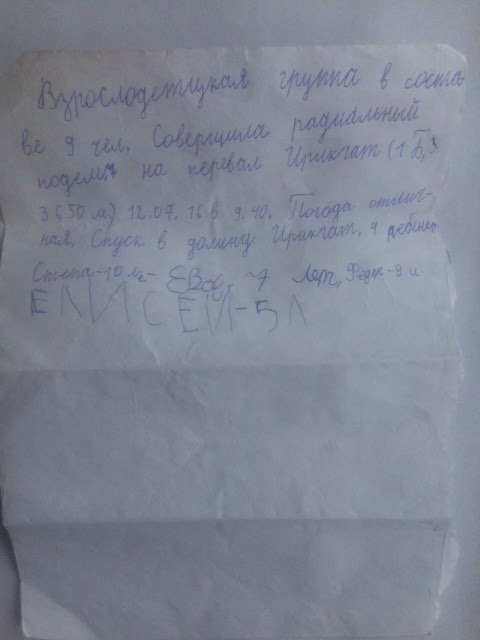 Взрослодетцкая группа в соста
ве 9 чел. Соверщила радиальный
подемъ на перевал Ирикчат (1Б,
3650 м) 12.07.16 в 9.40. Погода отлич-
ная. Спуск в долину Ирикчат. 4 ребенка
Степа-10 л. ЕВа - 7 лет, Федя-9 и
ЕЛИСЕЙ-5Л